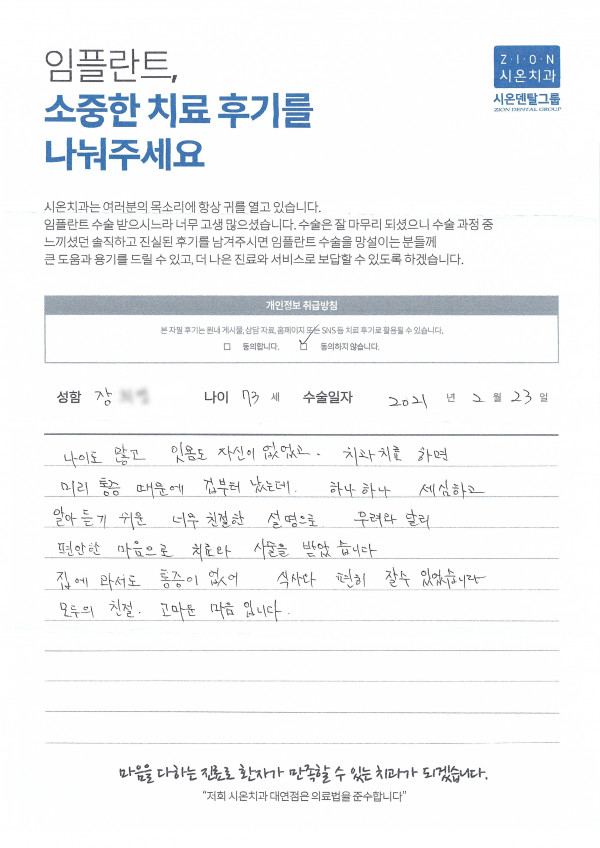 임플란트,
소중한 치료 후기를
나눠주세요
Z·I·O·N
시온치과
시온덴탈그룹
ZION DENTAL GROUP
시온치과는 여러분의 목소리에 항상 귀를 열고 있습니다.
임플란트 수술 받으시느라 너무 고생 많으셨습니다. 수술은 잘 마무리 되셨으니 수술 과정 중
느끼셨던 솔직하고 진실된 후기를 남겨주시면 임플란트 수술을 망설이는 분들께
큰 도움과 용기를 드릴 수 있고, 더 나은 진료와 서비스로 보답할 수 있도록 하겠습니다.
개인정보 취급방침
본 자필 후기는 원내 게시물, 상담 자료, 홈페이지 또는 SNS 등 치료 후기로 활용될 수 있습니다.
□ 동의합니다. □ 동의하지 않습니다.
성함 장 나이 73 세 수술일자 2021 년 2 월 23 일
나이도 많고 잇몸도 자신이 없었고. 치과치료 하면
미리 통증 때문에 겁부터 났는데. 하나하나 세심하고
알아듣기 쉬운 너무 친절한 설명으로 우려와 달리
편안한 마음으로 치료와 시술을 받았습니다
집에 와서도 통증이 없어 식사와 편히 잘수 있었습니다
모두의 친절. 고마운 마음 입니다.
마음을 다하는 진료로 환자가 만족할 수 있는 치과가 되겠습니다.
“저희 시온치과 대연점은 의료법을 준수합니다”